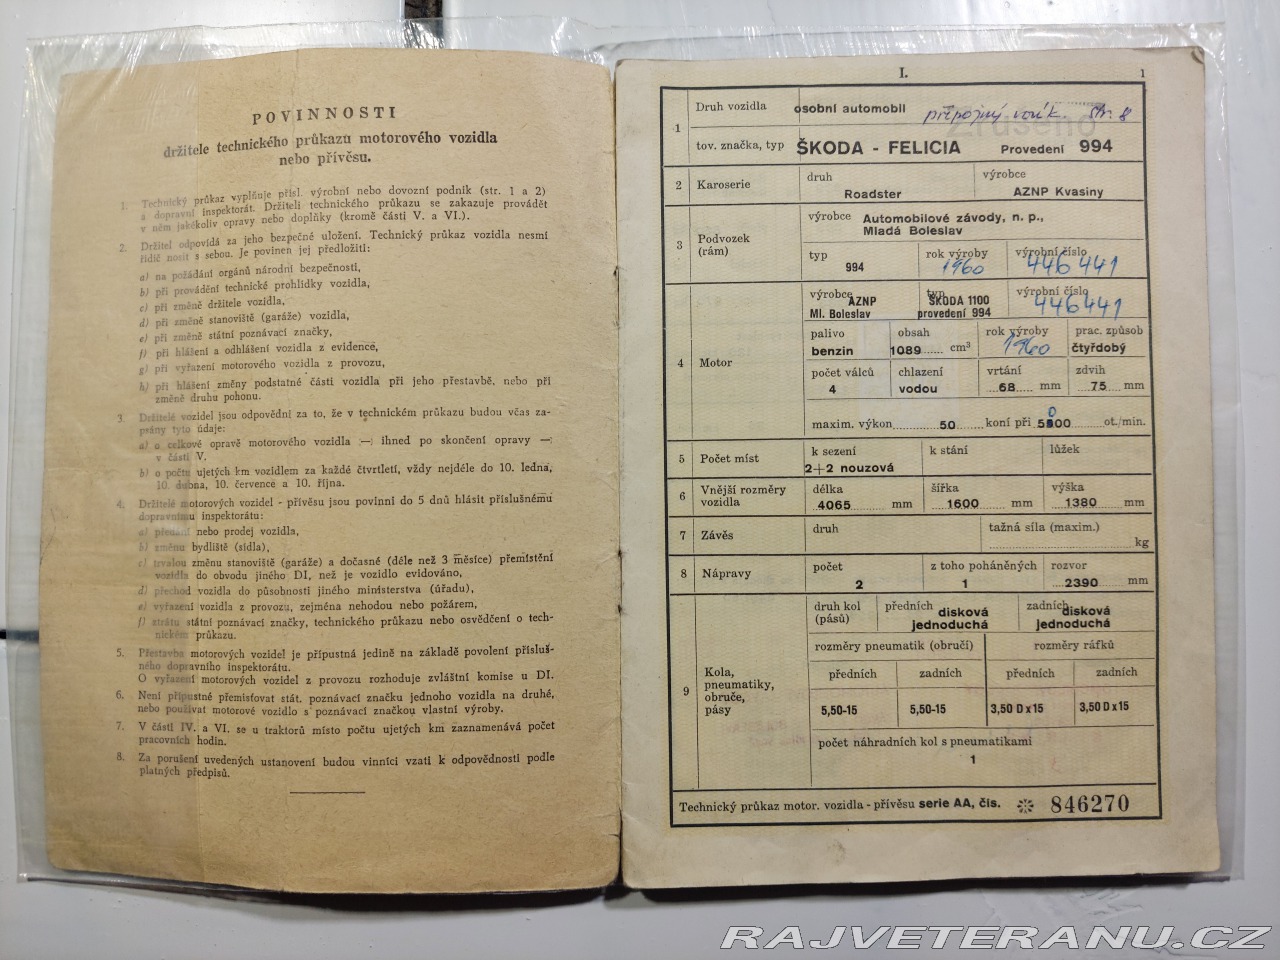 POVINNOSTI
držitele technického průkazu motorového vozidla
nebo přívěsu.
1. Technický průkaz vyplňuje přísl. výrobní nebo dovozní podnik (str. 1 a 2)
a dopravní inspektorát. Držiteli technického průkazu se zakazuje provádět
v něm jakékoliv opravy nebo doplňky (kromě části V. a VI.).
2. Držitel odpovídá za jeho bezpečné uložení. Technický průkaz vozidla nesmí
řidič nosit s sebou. Je povinen jej předložiti:
a) na požádání orgánů národní bezpečnosti,
b) při provádění technické prohlídky vozidla,
c) při změně držitele vozidla,
d) při změně stanoviště (garáže) vozidla,
e) při změně státní poznávací značky,
f) při hlášení a odhlášení vozidla z evidence,
g) při vyřazení motorového vozidla z provozu,
h) při hlášení změny podstatné části vozidla při jeho přestavbě, nebo při
změně druhu pohonu.
3. Držitelé vozidel jsou odpovědní za to, že v technickém průkazu budou včas za-
psány tyto údaje:
a) o celkové opravě motorového vozidla —: ihned po skončení opravy —:
v části V.
b) o počtu ujetých km vozidlem za každé čtvrtletí, vždy nejdéle do 10. ledna,
10. dubna, 10. července a 10. října.
4. Držitelé motorových vozidel - přívěsu jsou povinni do 5 dnů hlásit příslušnému
dopravnímu inspektorátu:
a) předání nebo prodej vozidla,
b) změnu bydliště (sídla),
c) trvalou změnu stanoviště (garáže) a dočasné (déle než 3 měsíce) přemístění
vozidla do obvodu jiného DI, než je vozidlo evidováno,
d) přechod vozidla do působnosti jiného ministerstva (úřadu),
e) vyřazení vozidla z provozu, zejména nehodou nebo požárem,
f) ztrátu státní poznávací značky, technického průkazu nebo osvědčení o tech-
nickém průkazu.
5. Přestavba motorových vozidel je přípustná jedině na základě povolení přísluš-
ného dopravního inspektorátu.
O vyřazení motorových vozidel z provozu rozhoduje zvláštní komise u DI.
6. Není přípustné přemisťovat stát. poznávací značku jednoho vozidla na druhé,
nebo používat motorové vozidlo s poznávací značkou vlastní výroby.
7. V části IV. a VI. se u traktorů místo počtu ujetých km zaznamenává počet
pracovních hodin.
8. Za porušení uvedených ustanovení budou vinníci vzati k odpovědnosti podle
platných předpisů.
I. 1
1 Druh vozidla osobní automobil přípojný vozík. Str. 8
Zrušeno
tov. značka, typ ŠKODA - FELICIA Provedení 994
2 Karoserie druh Roadster výrobce AZNP Kvasiny
3 Podvozek (rám) výrobce Automobilové závody, n. p.,
Mladá Boleslav
typ rok výroby výrobní číslo
994 1960 446441
4 Motor výrobce typ výrobní číslo
AZNP ŠKODA 1100 446441
Ml. Boleslav provedení 994
palivo obsah rok výroby prac. způsob
benzin 1089 cm³ 1960 čtyřdobý
počet válců chlazení vrtání zdvih
4 vodou 68 mm 75 mm
maxim. výkon 50 koní při 5000 ot./min.
5 Počet míst k sezení k stání lůžek
2+2 nouzová
6 Vnější rozměry vozidla délka šířka výška
4065 mm 1600 mm 1380 mm
7 Závěs druh tažná síla (maxim.)
kg
8 Nápravy počet z toho poháněných rozvor
2 1 2390 mm
9 Kola, pneumatiky, obruče, pásy
druh kol (pásů) předních disková jednoduchá zadních disková jednoduchá
rozměry pneumatik (obručí) rozměry ráfků
předních zadních předních zadních
5,50-15 5,50-15 3,50 D x 15 3,50 D x 15
počet náhradních kol s pneumatikami
1
Technický průkaz motor. vozidla - přívěsu serie AA, čís. 846270
RAJVETERANU.CZ